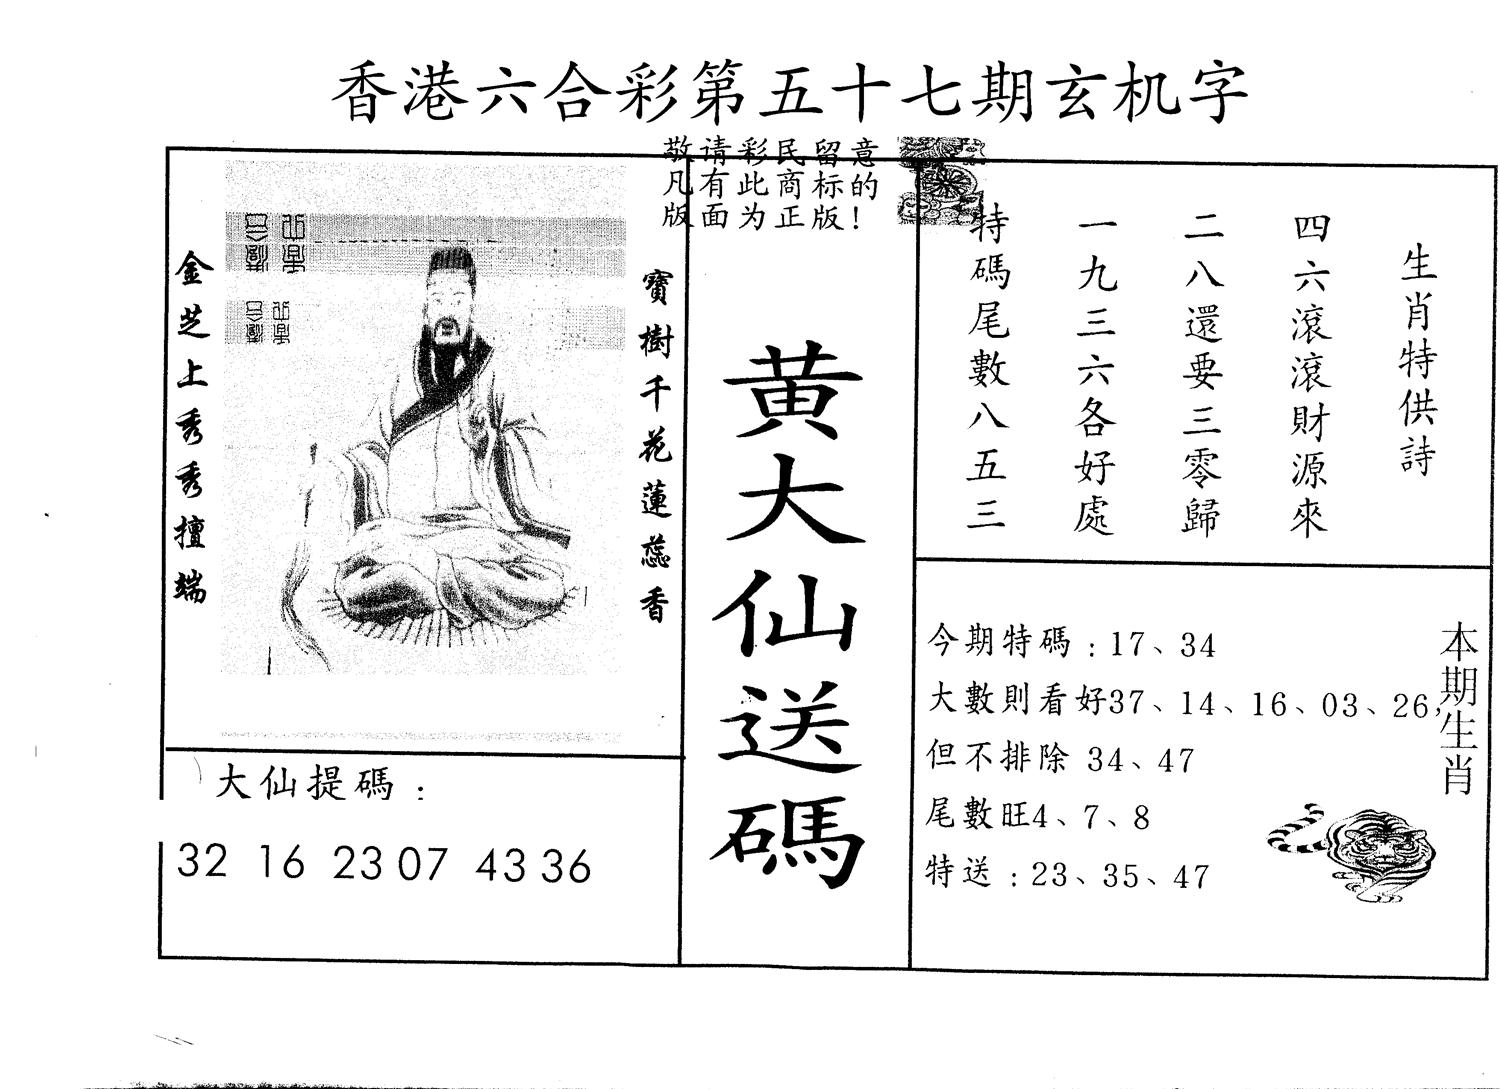 香港六合彩第五十七期玄机字
敬请彩民留意
凡有此商标的
版面为正版！
金芝上秀秀擅端
寶樹千花蓮蕊香
黄大仙送碼
生肖特供詩
四六滾滾財源來
二八還要三零歸
一九三六各好處
特碼尾數八五三
大仙提碼：
32 16 23 07 43 36
今期特碼：17、34
大數則看好37、14、16、03、26，
但不排除 34、47
尾數旺4、7、8
特送：23、35、47
本期生肖